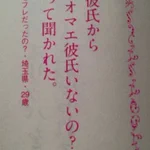 彼氏から
オマエ彼氏いないの？
って聞かれた。
フレだったの？・埼玉県・29歳